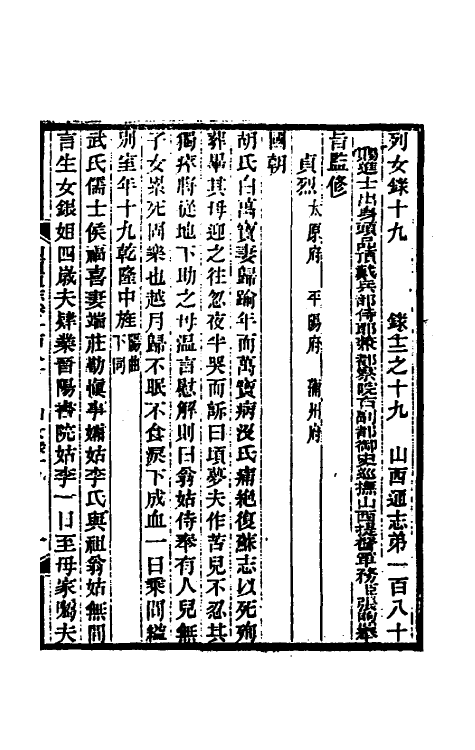 列女錄十九　錄十二之十九　山西通志第一百八十
賜進士出身頭品頂戴兵部侍郎兼都察院右副都御史巡撫山西提督軍務臣張煦奉
旨監修
貞烈 太原府 平陽府 蒲州府
國朝
胡氏白萬寶妻歸踰年而萬寶病沒氏痛絕復蘇志以死殉
葬畢其母迎之往忽夜半哭而訴曰頃夢夫作苦兒不忍其
獨瘁將從地下助之母温言慰解則曰翁姑侍奉有人兒無
子女累死固樂也越月歸不眠不食淚下成血一日乘間縊
別室年十九乾隆中旌 陽曲下同
武氏儒士侯福喜妻端莊勤慎事孀姑李氏與祖翁姑無間
言生女銀姐四歲夫肄業晉陽書院姑李一日至母家獨夫